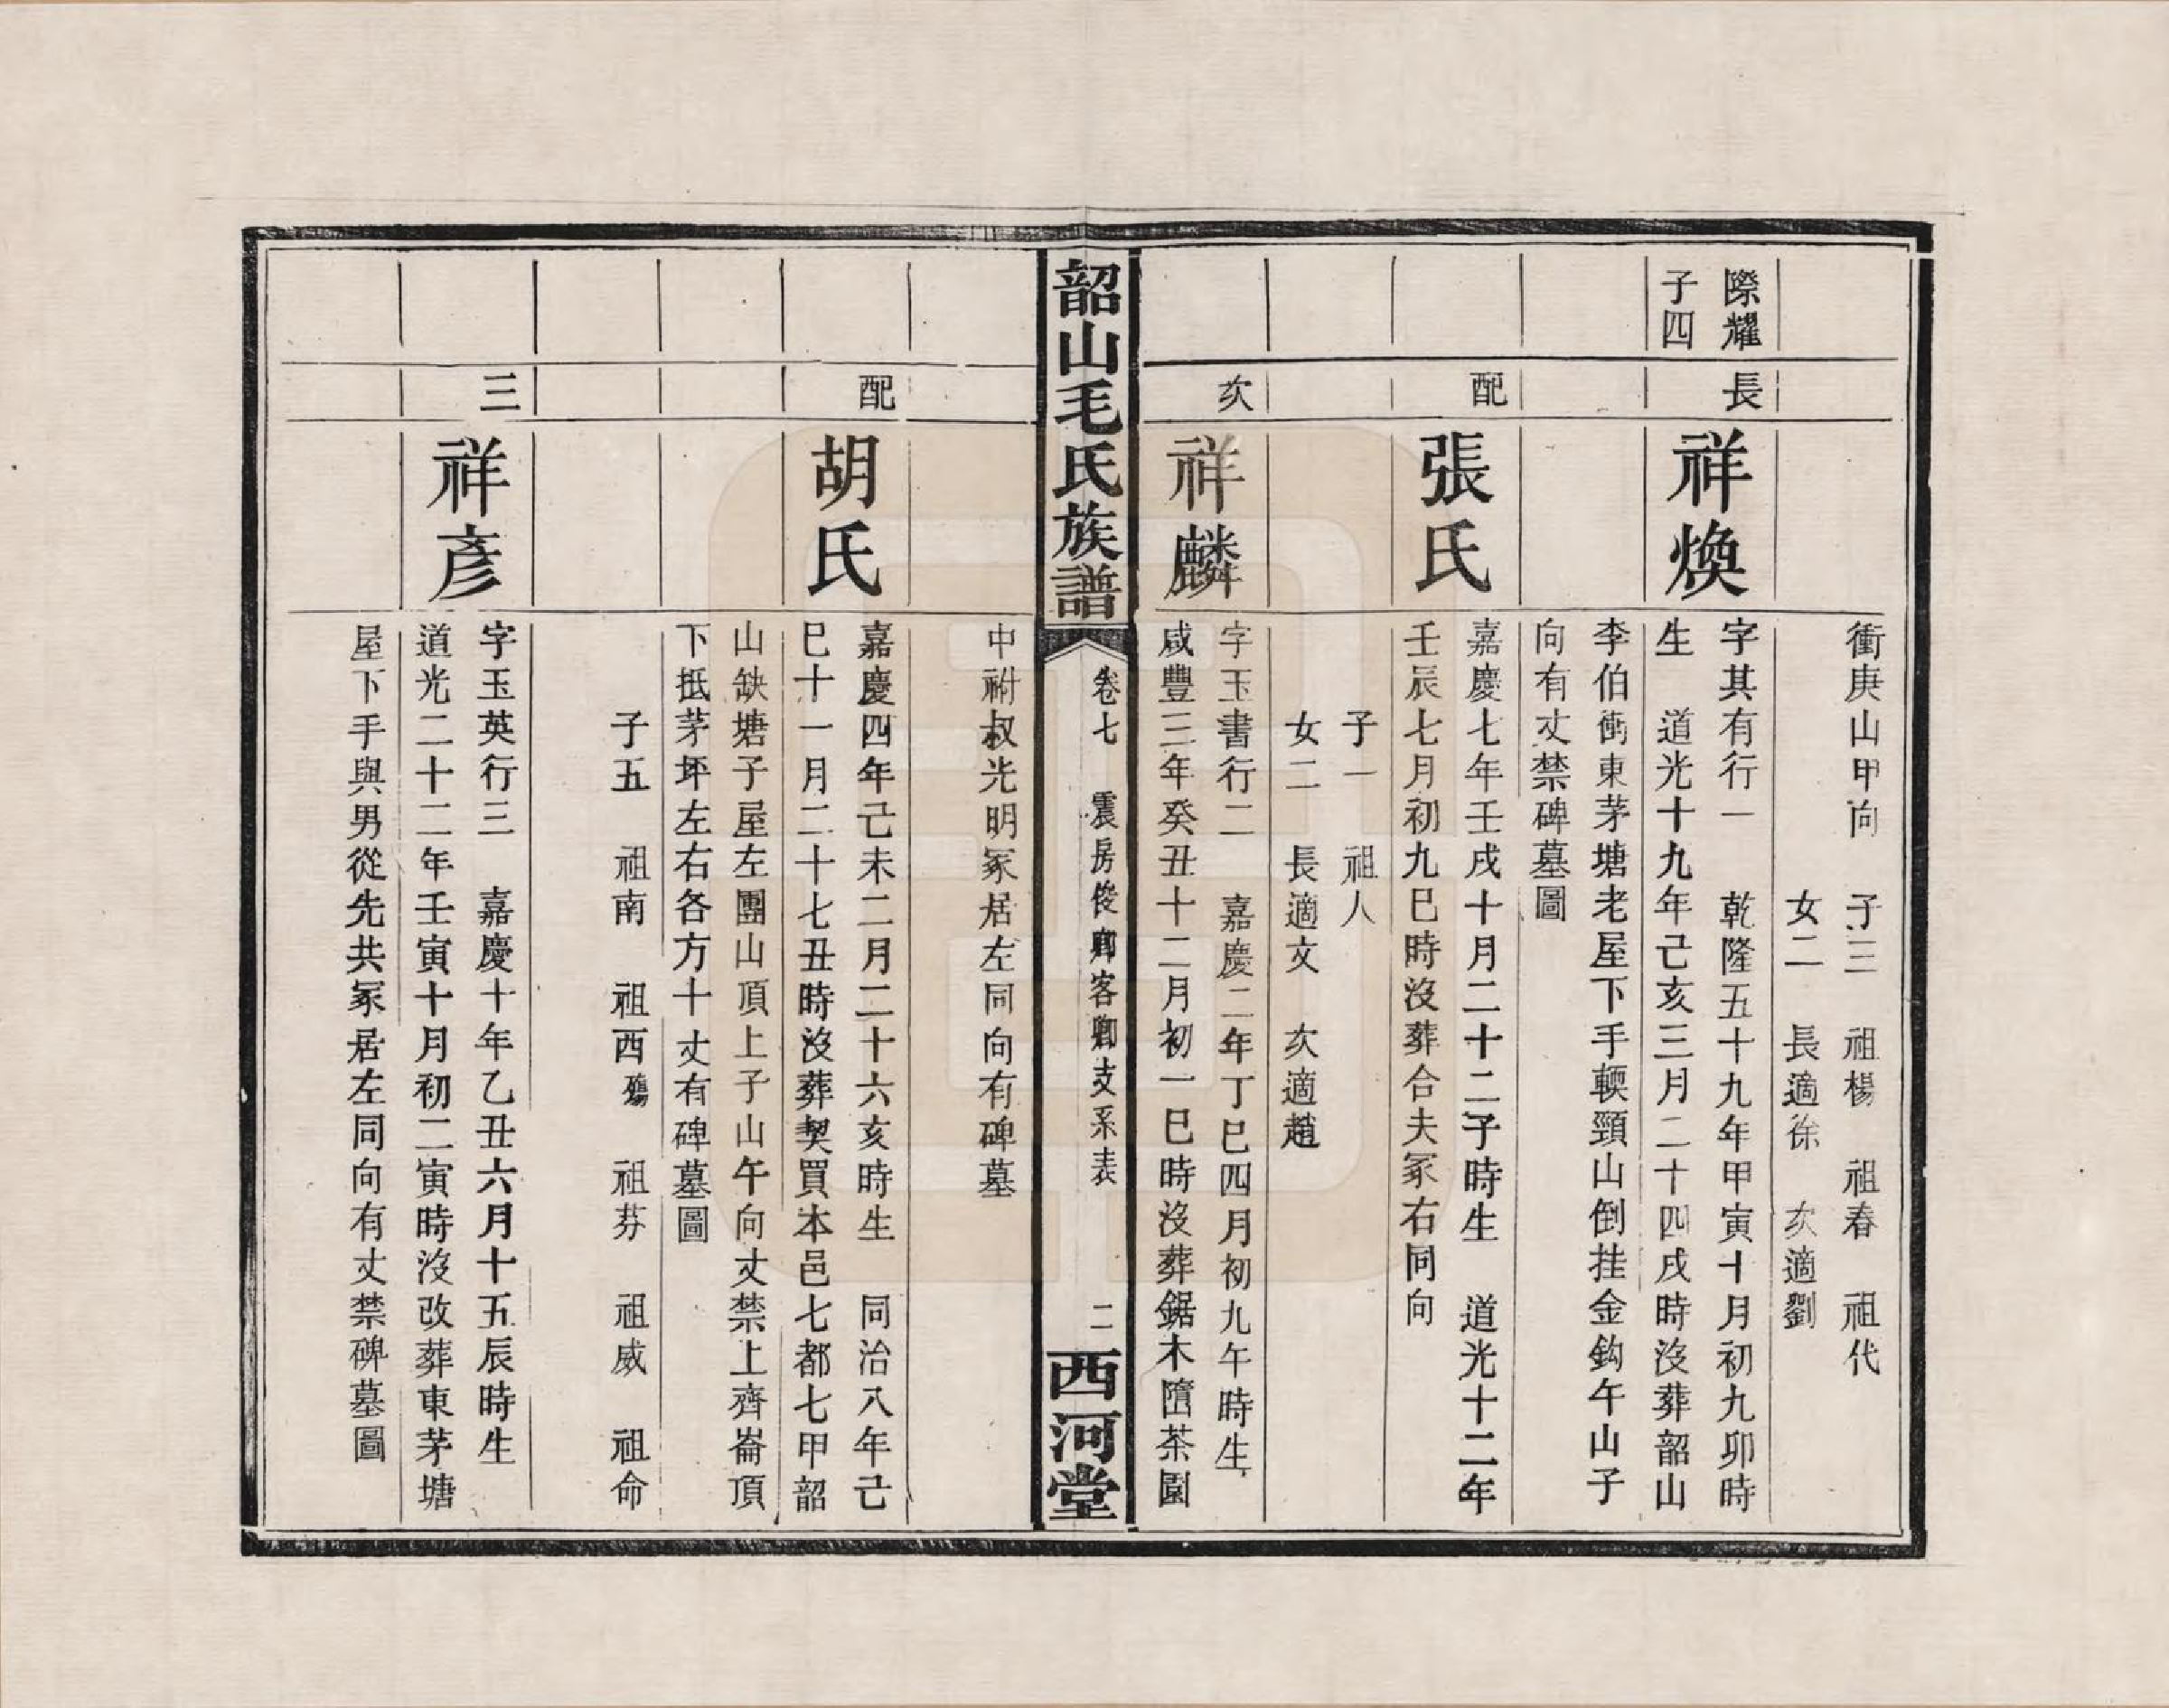 衝庚山甲向　子三　祖楊　祖春　祖代
女二　長適徐　次適劉
際耀
子四
長
祥煥
字其有行一　乾隆五十九年甲寅十月初九卯時
生　道光十九年己亥三月二十四戌時沒葬韶山
李伯衝東茅塘老屋下手輭頸山倒挂金鈎午山子
向有丈禁碑墓圖
配
張氏
嘉慶七年壬戌十月二十二子時生　道光十二年
壬辰七月初九巳時沒葬合夫冢右同向
子一　祖人
女二　長適文　次適趙
次
祥麟
字玉書行二　嘉慶二年丁巳四月初九午時生
咸豐三年癸丑十二月初一巳時沒葬鋸木墮茶園
韶山毛氏族譜
卷七　震房俊卿客卿支系表
二
西河堂
中祔叔光明冢居左同向有碑墓
配
胡氏
嘉慶四年己未二月二十六亥時生　同治八年己
巳十一月二十七丑時沒葬契買本邑七都七甲韶
山缺塘子屋左團山頂上子山午向丈禁上齊崙頂
下抵茅坪左右各方十丈有碑墓圖
子五　祖南　祖西殤　祖芬　祖威　祖命
三
祥彥
字玉英行三　嘉慶十年乙丑六月十五辰時生
道光二十二年壬寅十月初二寅時沒改葬東茅塘
屋下手與男從先共冢居左同向有丈禁碑墓圖